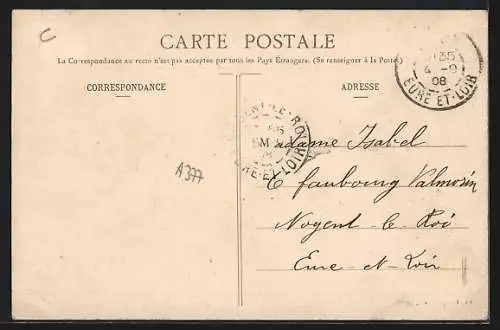 C
CARTE POSTALE
La Correspondance au recto n'est pas acceptée par tous les Pays Étrangers. (Se renseigner à la Poste)
CORRESPONDANCE
ADRESSE
35
4-9
08
EURE-ET-LOIR
ENT-LE-ROI
EURE-ET-LOIR
A377
Madame Isabel
6 faubourg Valmorin
Nogent-le-Roi
Eure-et-Loir